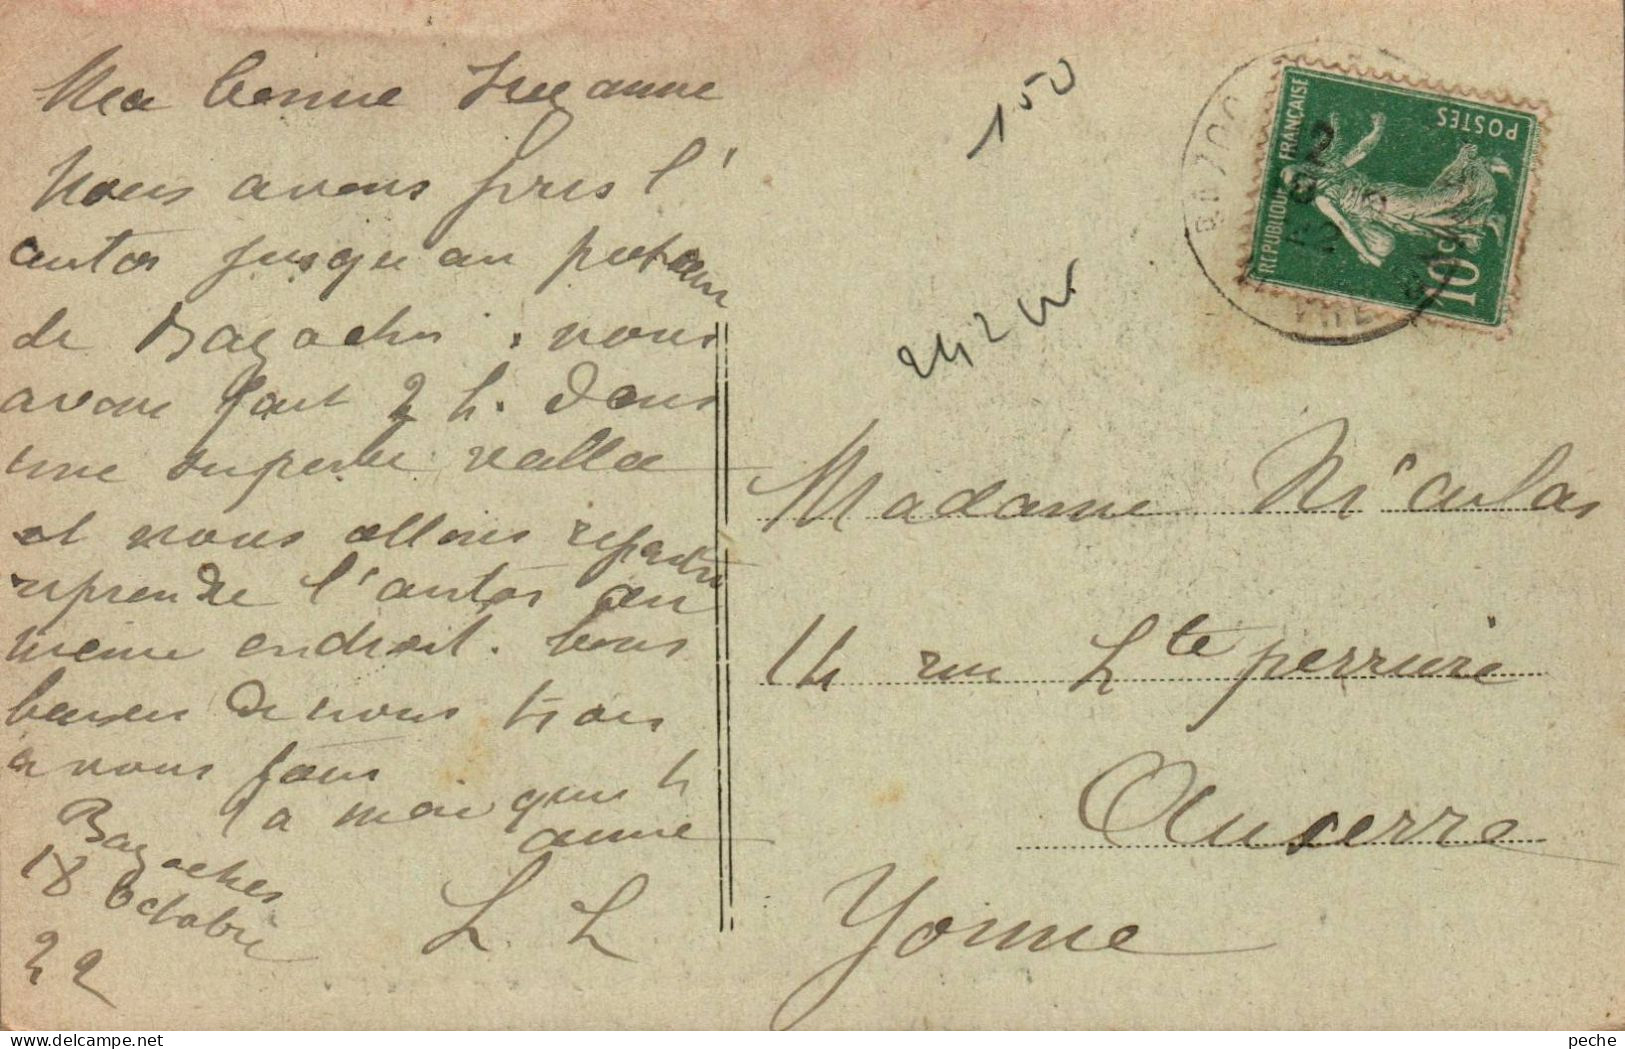 Ma bonne Suzanne
Nous avons pris l'
autos jusqu'au poteau
de Bazoches. nous
avons fait 2 h. dans
une superbe vallée
et nous allons repartir
reprendre l'autos au
meme endroit. bons
baisers de nous trois
a vous tous
la marquise
anne
Bazoches
18 octobre
22
L. L
150
REPUBLIQUE FRANÇAISE
POSTES
10c
Madame Nicolas
14 rue Lte perriere
Auxerre
Yonne
peche